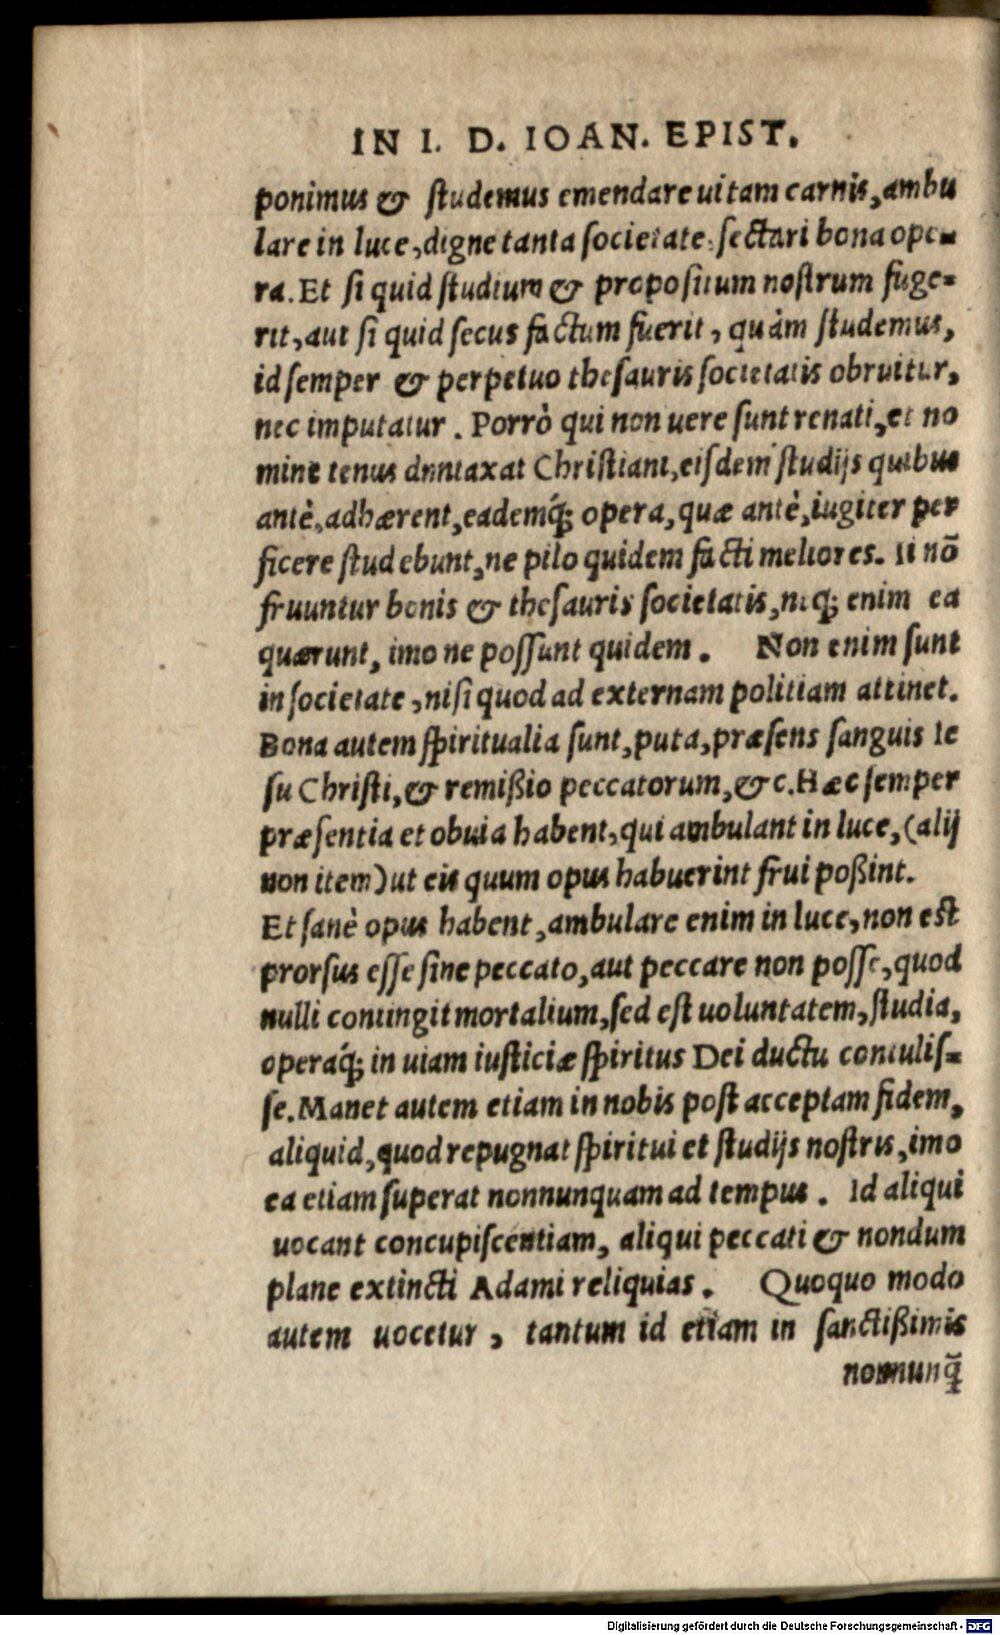 IN I. D. IOAN. EPIST.
ponimus & studemus emendare uitam carnis, ambu
lare in luce, digne tanta societate: sectari bona ope-
ra. Et si quid studium & propositum nostrum fuge-
rit, aut si quid secus factum fuerit, quàm studemus,
id semper & perpetuo thesauris societatis obruitur,
nec imputatur. Porrò qui non uere sunt renati, et no
mine tenus dnntaxat Christiani, eisdem studijs quibus
antè, adhærent, eademq́; opera, quæ antè, iugiter per
ficere studebunt, ne pilo quidem facti meliores. Ii nō
fruuntur bonis & thesauris societatis, neq; enim ea
quærunt, imo ne possunt quidem. Non enim sunt
in societate, nisi quod ad externam politiam attinet.
Bona autem spiritualia sunt, puta, præsens sanguis Ie
su Christi, & remißio peccatorum, &c. Hæc semper
præsentia et obuia habent, qui ambulant in luce, (alij
non item) ut eis quum opus habuerint frui poßint.
Et sanè opus habent, ambulare enim in luce, non est
prorsus esse sine peccato, aut peccare non posse, quod
nulli contingit mortalium, sed est uoluntatem, studia,
operaq́; in uiam iusticiæ spiritus Dei ductu contulis-
se. Manet autem etiam in nobis post acceptam fidem,
aliquid, quod repugnat spiritui et studijs nostris, imo
ea etiam superat nonnunquam ad tempus. Id aliqui
uocant concupiscentiam, aliqui peccati & nondum
plane extincti Adami reliquias. Quoquo modo
autem uocetur, tantum id etiam in sanctißimis
nonnunq̃
Digitalisierung gefördert durch die Deutsche Forschungsgemeinschaft - DFG